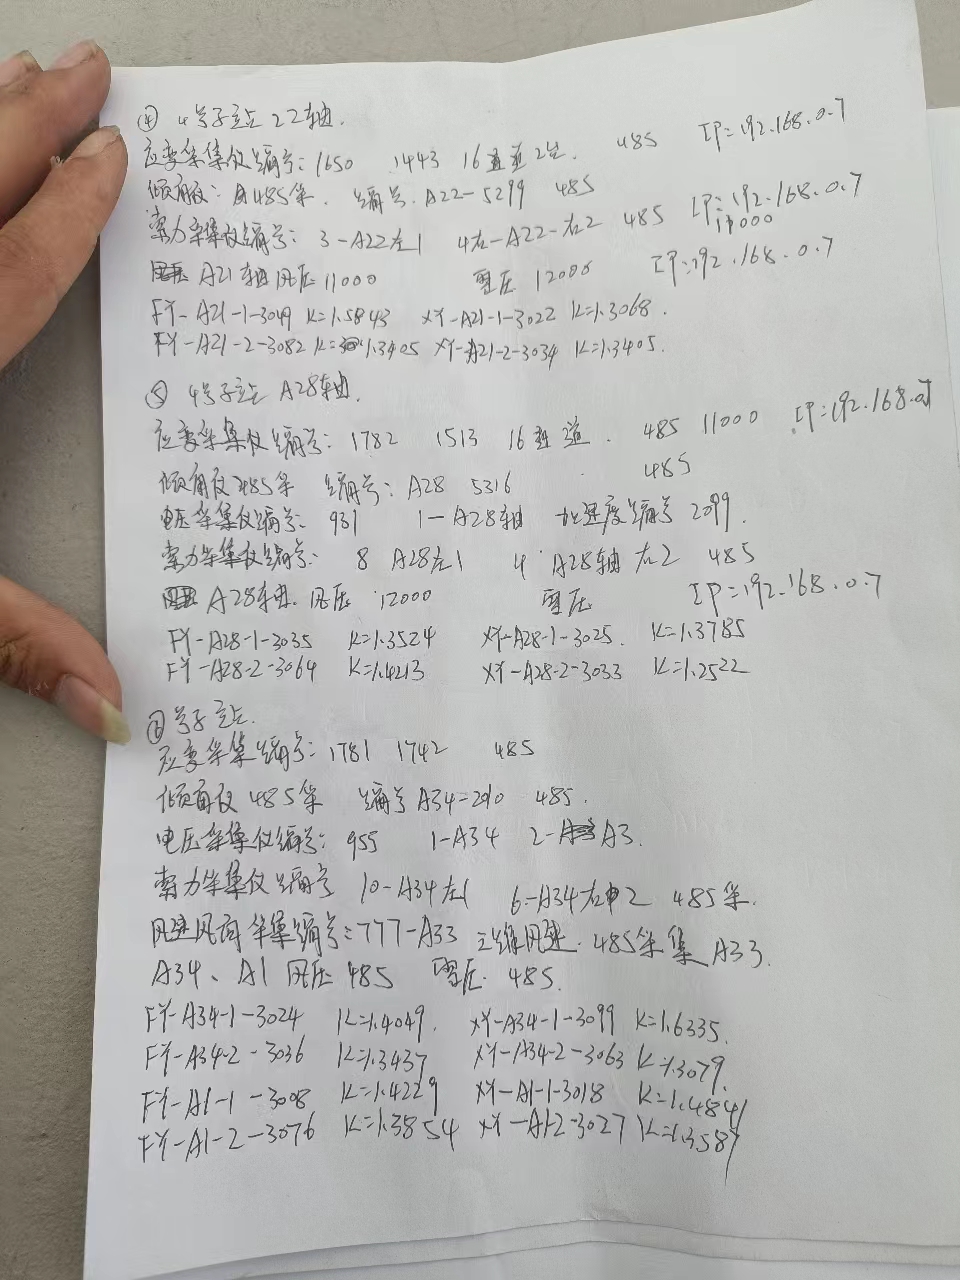 ④ 4号子站 22轴.
应变采集仪编号: 1650 1443 16通道2线. 485 IP=192.168.0.7
倾角仪: 485采. 编号. A22-5299 485
索力采集仪编号: 3-A22左1 4右-A22-右2 485 IP=192.168.0.7
11000
A21轴风压 11000 雪压 12000 IP=192.168.0.7
FY-A21-1-3049 K=1.5843 XY-A21-1-3022 K=1.3068.
FY-A21-2-3082 K=1.3405 XY-A21-2-3034 K=1.3405.
⑤ 4号子站 A28轴.
应变采集仪编号: 1782 1513 16通道. 485 11000 IP=192.168.0.7
倾角仪485采 编号: A28 5316 485
电压采集仪编号: 931 1-A28轴 加速度编号 2099.
索力采集仪编号: 8 A28左1 4 A28轴右2 485
A28轴. 风压 12000 雪压 IP=192.168.0.7
FY-A28-1-3035 K=1.3524 XY-A28-1-3025. K=1.3785
FY-A28-2-3064 K=1.4213 XY-A28-2-3033 K=1.2522
号子站.
应变采集编号: 1781 1742 485
倾角仪 485采 编号 A34=2010 485.
电压采集仪编号: 955 1-A34 2-A3.
索力采集仪编号 10-A34左1 6-A34右2 485采.
风速风向采集编号: 777-A33 三维风速. 485采集 A33.
A34、A1 风压 485 雪压. 485.
FY-A34-1-3024 K=1.4049. XY-A34-1-3099 K=1.6335.
FY-A34-2-3036 K=1.3437 XY-A34-2-3063 K=1.3079.
FY-A1-1-3008 K=1.4229 XY-A1-1-3018 K=1.4841
FY-A1-2-3076 K=1.3854 XY-A1-2-3027 K=1.3587